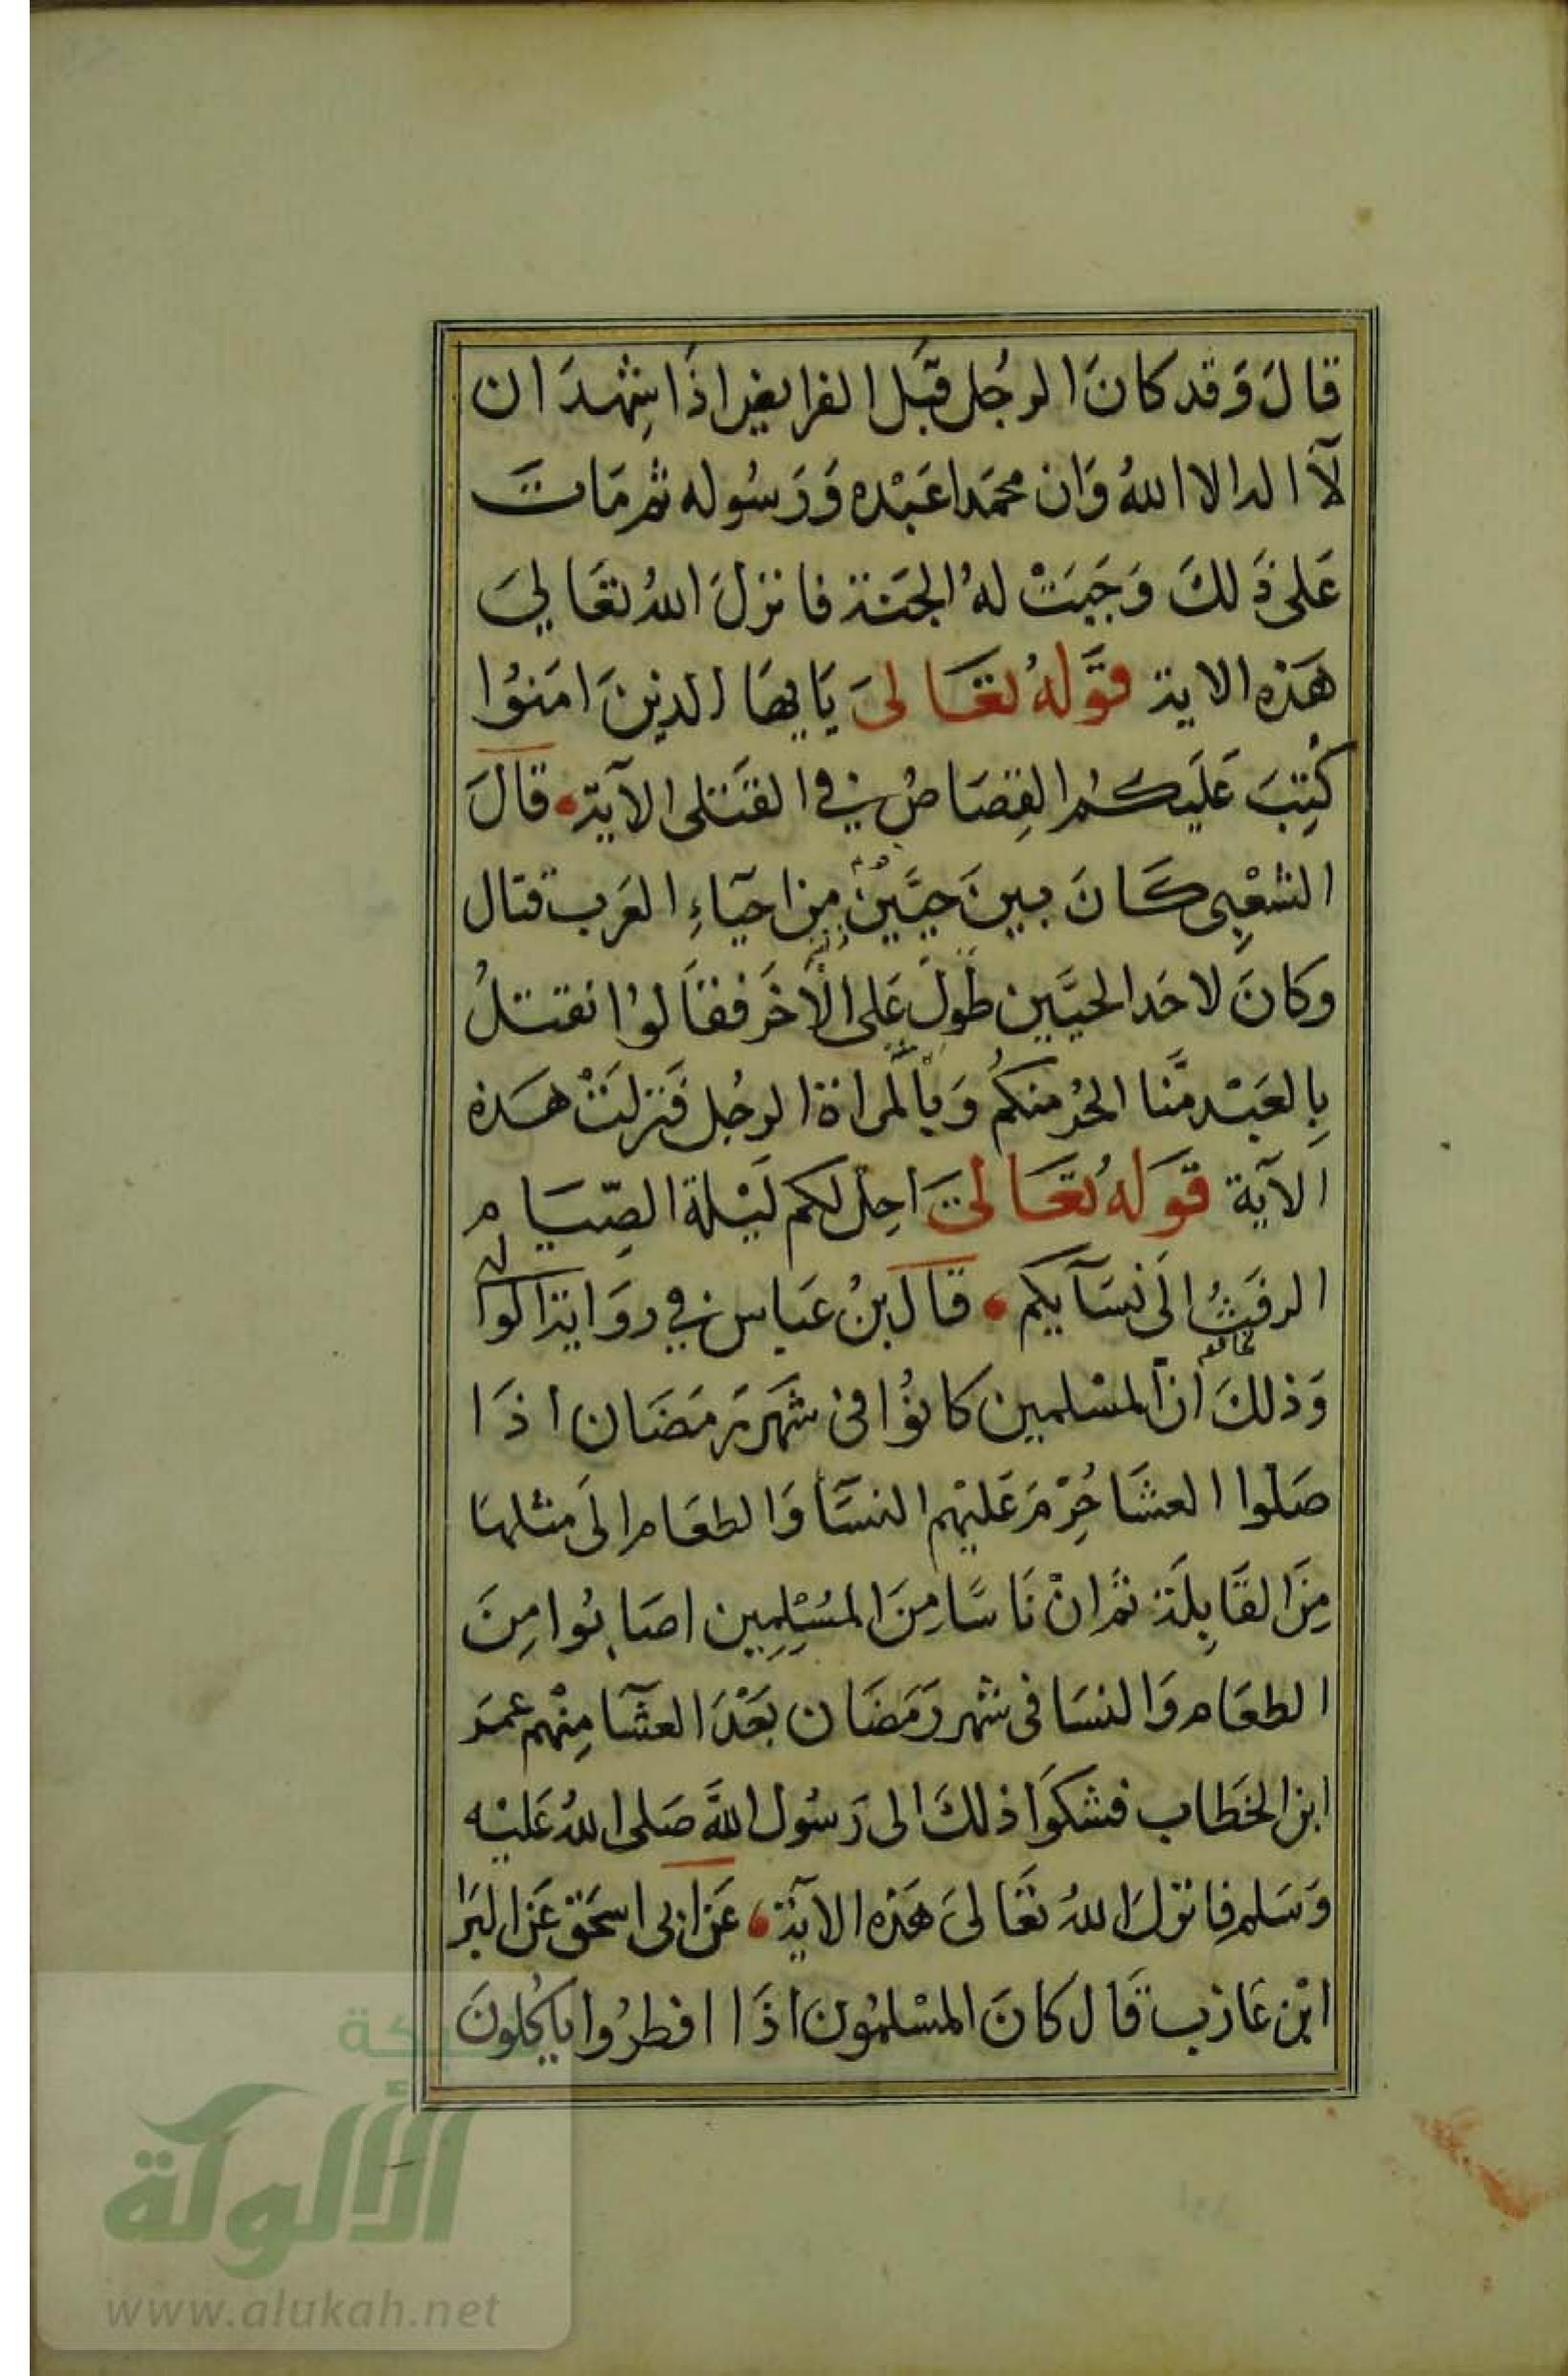 قالَ وَقد كانَ الرجُل قبَل الفرايض اذَا شِهدَ ان
لآ اله الا اللهُ وَان محمَدا عَبْده وَرَسُوله ثم مَاتَ
عَلى ذَلكَ وَجَبَتْ لهُ الجَنة فانزلَ اللهُ تعَالىَ
هَذه الاية قَولهُ تعَالىَ يَايها الذينَ امَنوُا
كُتِبَ عَليَكم القِصَاصُ في القَتلى الآية قَالَ
الشعْبِى كَانَ بينَ حيَّيْنِ مِن احيَاءِ العَرب قتال
وكانَ لاحَد الحيَّين طَولَ عَلى الآخَر فقَالوُا نقتلُ
بِالعَبْد مَّنا الحُر منكُم وَبالمراة الرجُل فَنزلتْ هَذه
الآية قَولهُ تعَالىَ احِل لكم ليْلة الصِّيَام
الرفَثُ الَى نسَآيكم قالَ بنُ عَباس في روَاية الوالبى
وَذلكَ انَّ المسْلمين كانوُا فى شهَر رَمَضَان اذَا
صَلوا العشَا حُرِّمَ عَليْهم النسَّآ وَالطعَام الَى مثلهَا
مِنَ القَابِلَة ثم انْ نَاسًا مِنَ المُسْلِمِين اصَابُوا مِنَ
الطعَام وَالنسَا فى شهر رَمَضَان بَعْدَ العشَآ مِنْهم عمَر
ابن الخَطاب فشكوَا ذلكَ الى رَسُول اللهَّ صَلى اللهُ عَليْه
وَسَلم فانزلَ اللهُ تعَالىَ هَذه الآيَة عَن ابى اسحَق عَن البَرَا
ابْن عَازب قَال كانَ المسْلمُون اذَا افطرُوا ياكُلونَ
شبكة
الألوكة
www.alukah.net